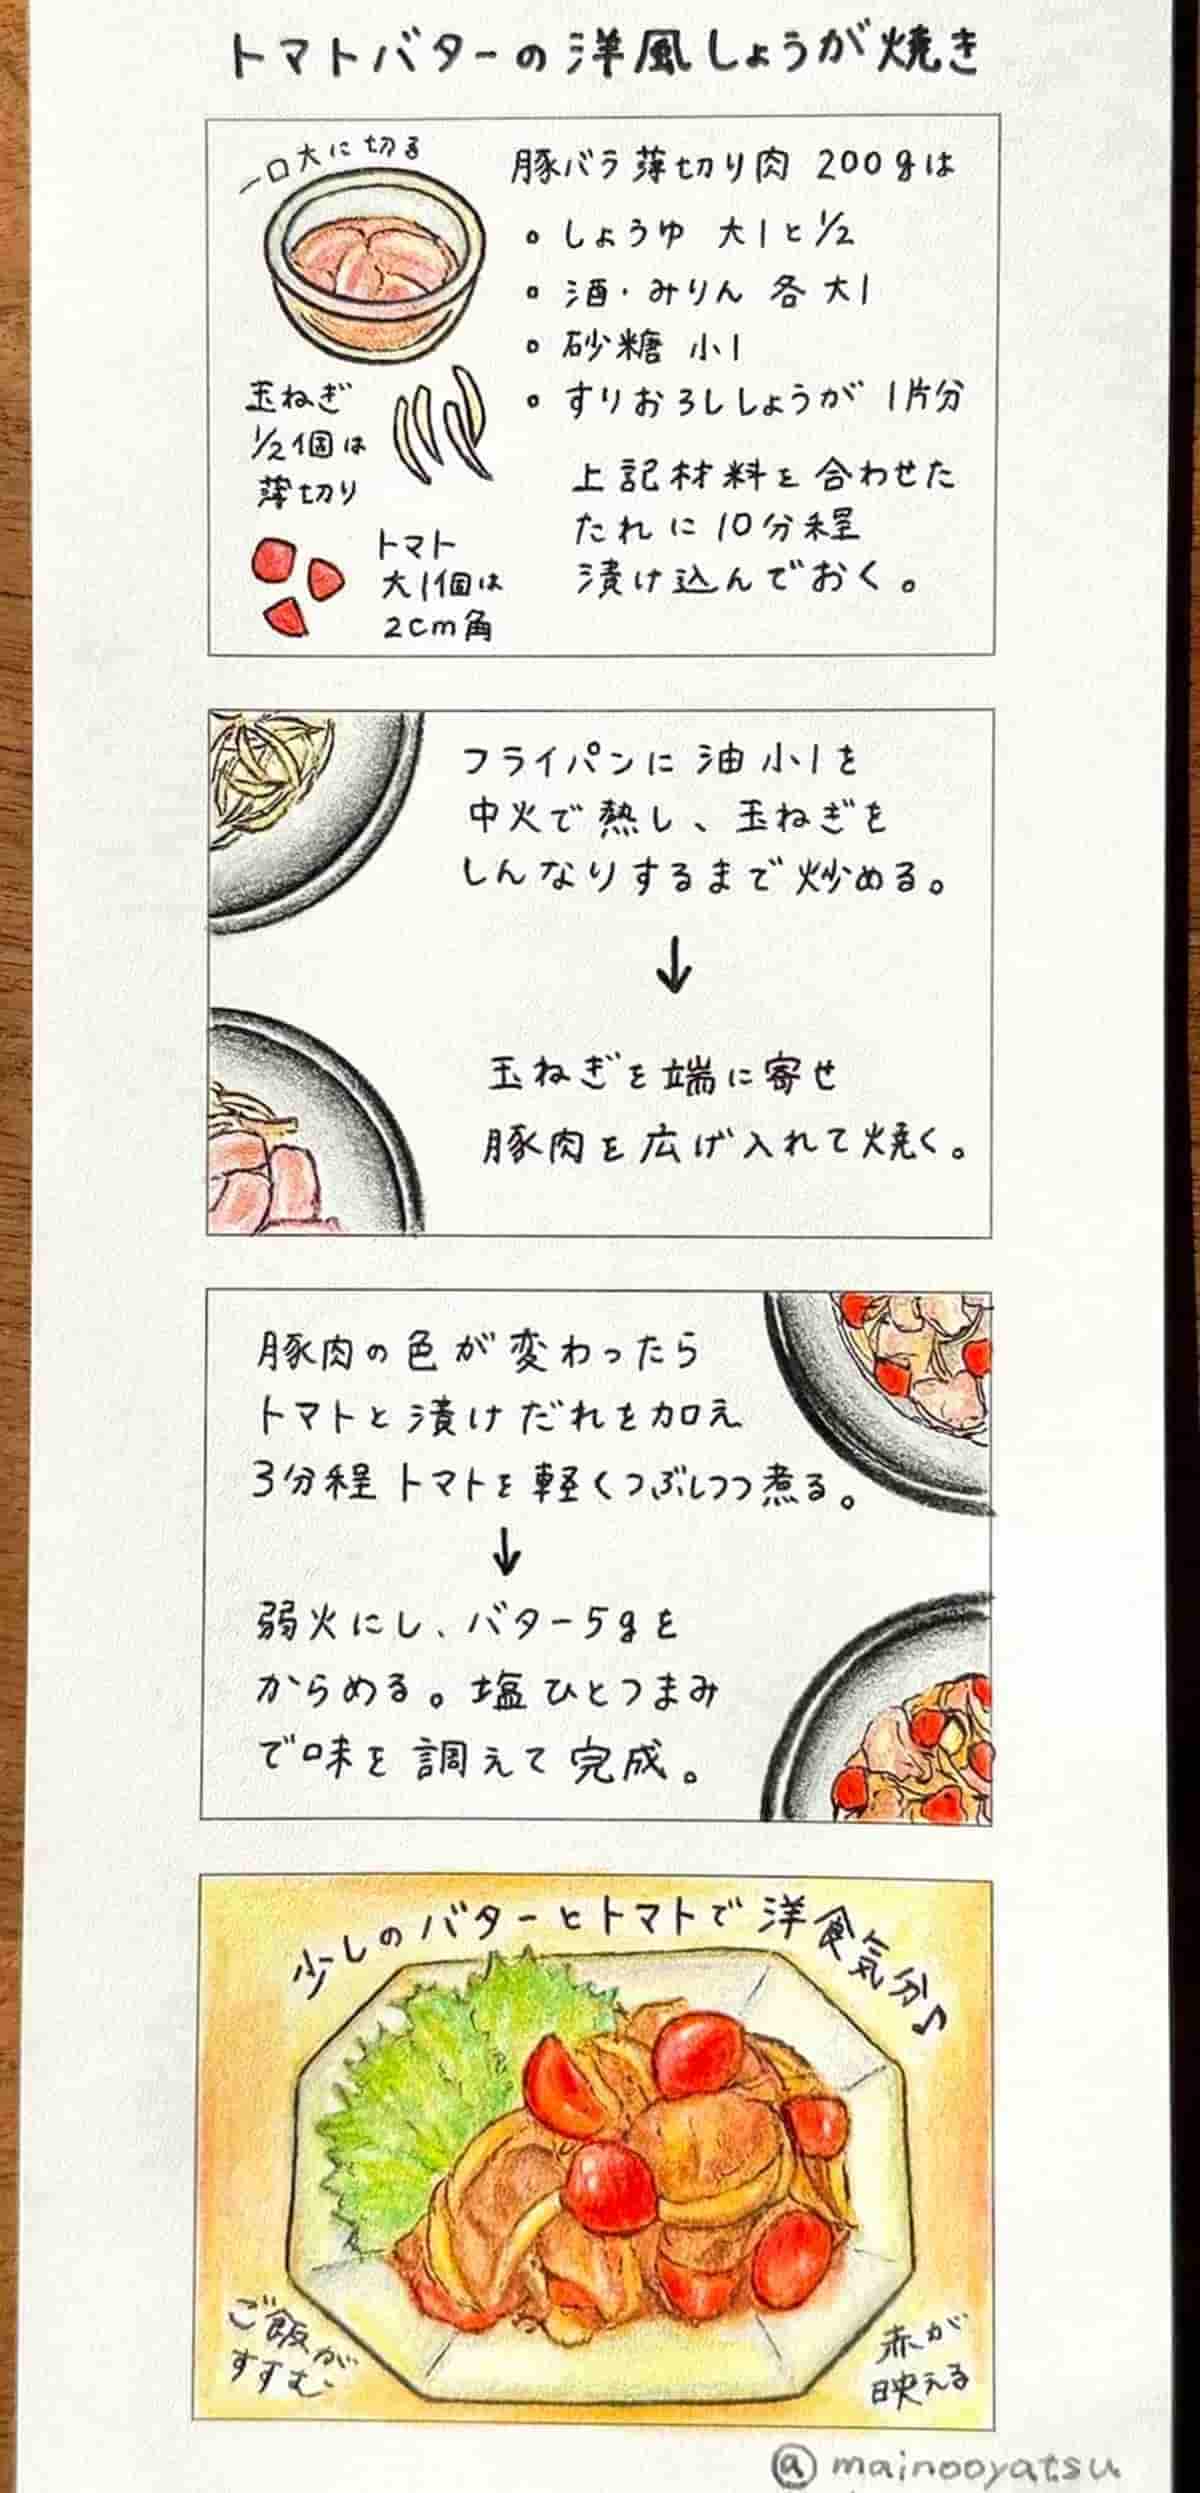 トマトバターの洋風しょうが焼き
一口大に切る
豚バラ薄切り肉 200gは
• しょうゆ 大1と1/2
• 酒・みりん 各大1
• 砂糖 小1
• すりおろししょうが 1片分
上記材料を合わせた
たれに10分程
漬け込んでおく。
玉ねぎ
1/2個は
薄切り
トマト
大1個は
2cm角
フライパンに油小1を
中火で熱し、玉ねぎを
しんなりするまで炒める。
↓
玉ねぎを端に寄せ
豚肉を広げ入れて焼く。
豚肉の色が変わったら
トマトと漬けだれを加え
3分程トマトを軽くつぶしつつ煮る。
↓
弱火にし、バター5gを
からめる。塩ひとつまみ
で味を調えて完成。
少しのバターとトマトで洋食気分♪
ご飯が
すすむ
赤が
映える
@mainooyatsu